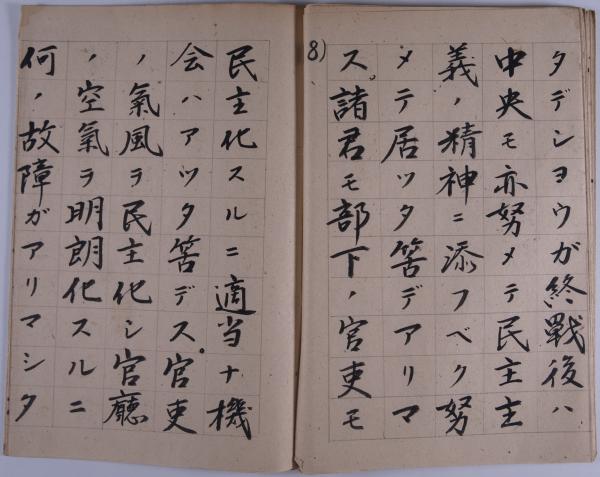 8)
タデシヨウガ終戰後ハ
中央モ亦努メテ民主主
義ノ精神ニ添フベク努
メテ居ツタ筈デアリマ
ス。諸君モ部下ノ官吏モ
民主化スルニ適当ナ機
会ハアツタ筈デス。官吏
ノ氣風ヲ民主化シ官廳
ノ空氣ヲ明朗化スルニ
何ノ故障ガアリマシタ